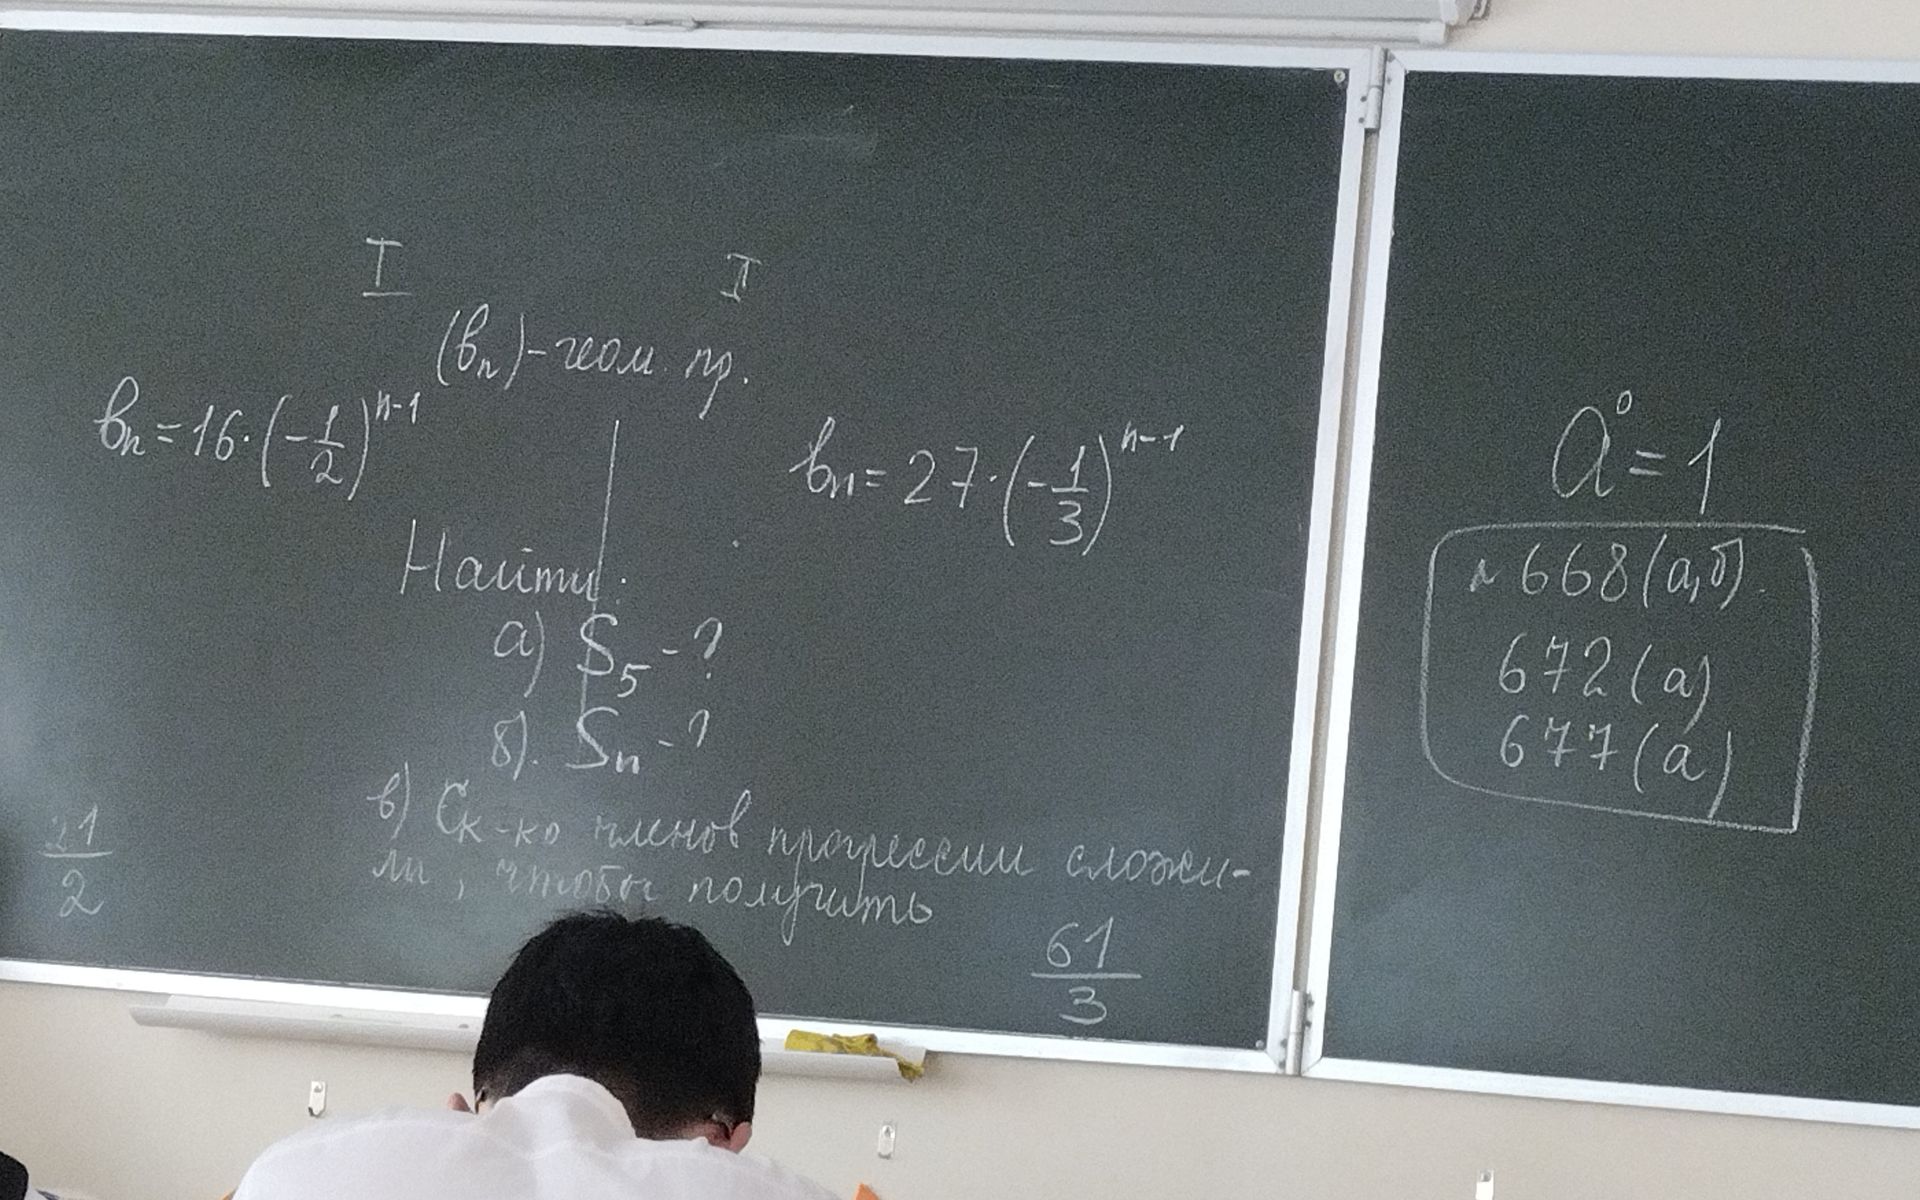 I II
(bₙ)-геом. пр.
bₙ = 16·(-1/2)ⁿ⁻¹
bₙ = 27·(-1/3)ⁿ⁻¹
Найти:
а) S₅ - ?
б). Sₙ - ?
в) Ск-ко членов прогрессии сложи-
ли, чтобы получить
21/2
61/3
a⁰ = 1
N 668(а,б).
672(а)
677(а)